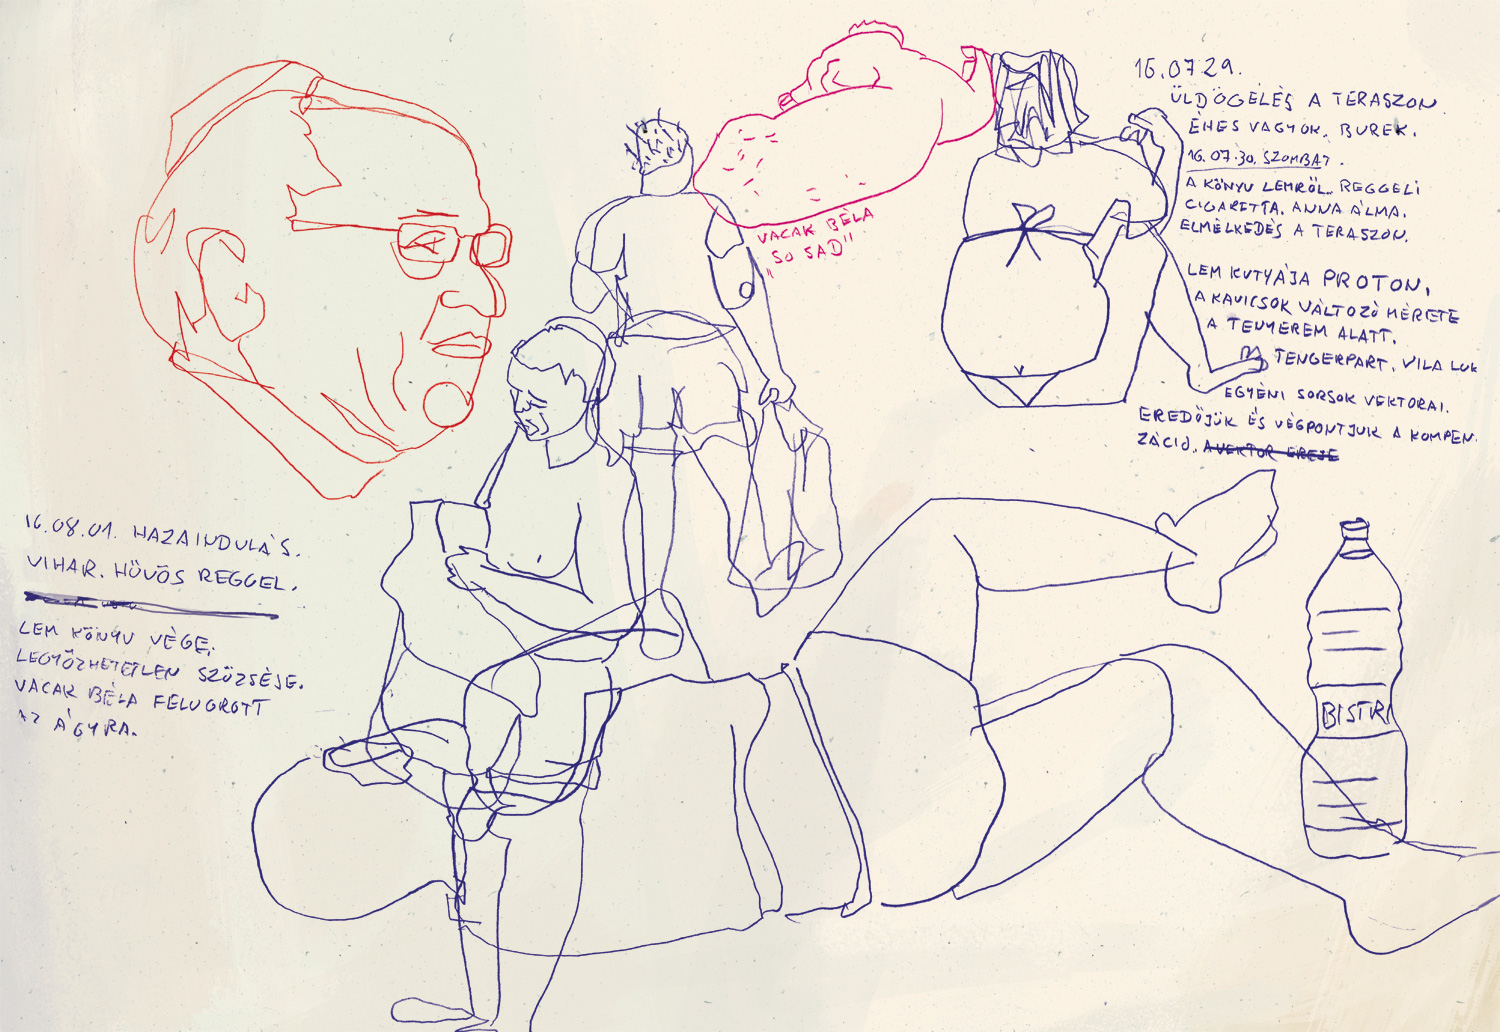 16.07.29.
ÜLDÖGÉLÉS A TERASZON.
ÉHES VAGYOK. BUREK.
16.07.30. SZOMBAT.
A KÖNYV LEMRŐL. REGGELI
CIGARETTA. ANNA ÁLMA.
ELMÉLKEDÉS A TERASZON.
LEM KUTYÁJA PROTON,
A KAVICSOK VÁLTOZÓ MÉRETE
A TENYEREM ALATT.
TENGERPART. VILA LUK
EGYÉNI SORSOK VEKTORAI.
EREDŐJÜK ÉS VÉGPONTJUK A KOMPEN.
ZÁCIÓ. A VEKTOR EREJE
VACAK BÉLA
"SO SAD"
16.08.01. HAZAINDULÁS.
VIHAR. HŰVÖS REGGEL.
LEM KÖNYV VÉGE.
LEGYŐZHETETLEN SZÜZSÉJE.
VACAK BÉLA FELUGROTT
AZ ÁGYRA.
BISTR